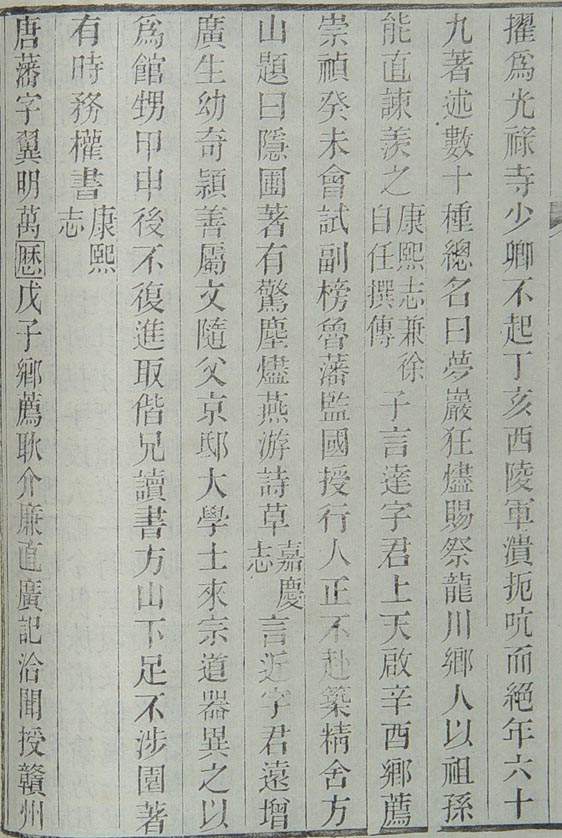 擢爲光祿寺少卿不起丁亥西陵軍潰扼吭而絕年六十
九著述數十種總名曰夢巖狂燼賜祭龍川鄉人以祖孫
能直諫羨之康熙志兼徐自任撰傳子言達字君上天啟辛酉鄉薦
崇禎癸未會試副榜魯藩監國授行人正不赴築精舍方
山題曰隱圃著有驚塵燼燕游詩草嘉慶志言近字君遠增
廣生幼奇穎善屬文隨父京邸大學士來宗道器異之以
爲館甥甲申後不復進取偕兄讀書方山下足不涉園著
有時務權書康熙志
唐藩字翼明萬厯戊子鄉薦耿介廉直廣記洽聞授贛州